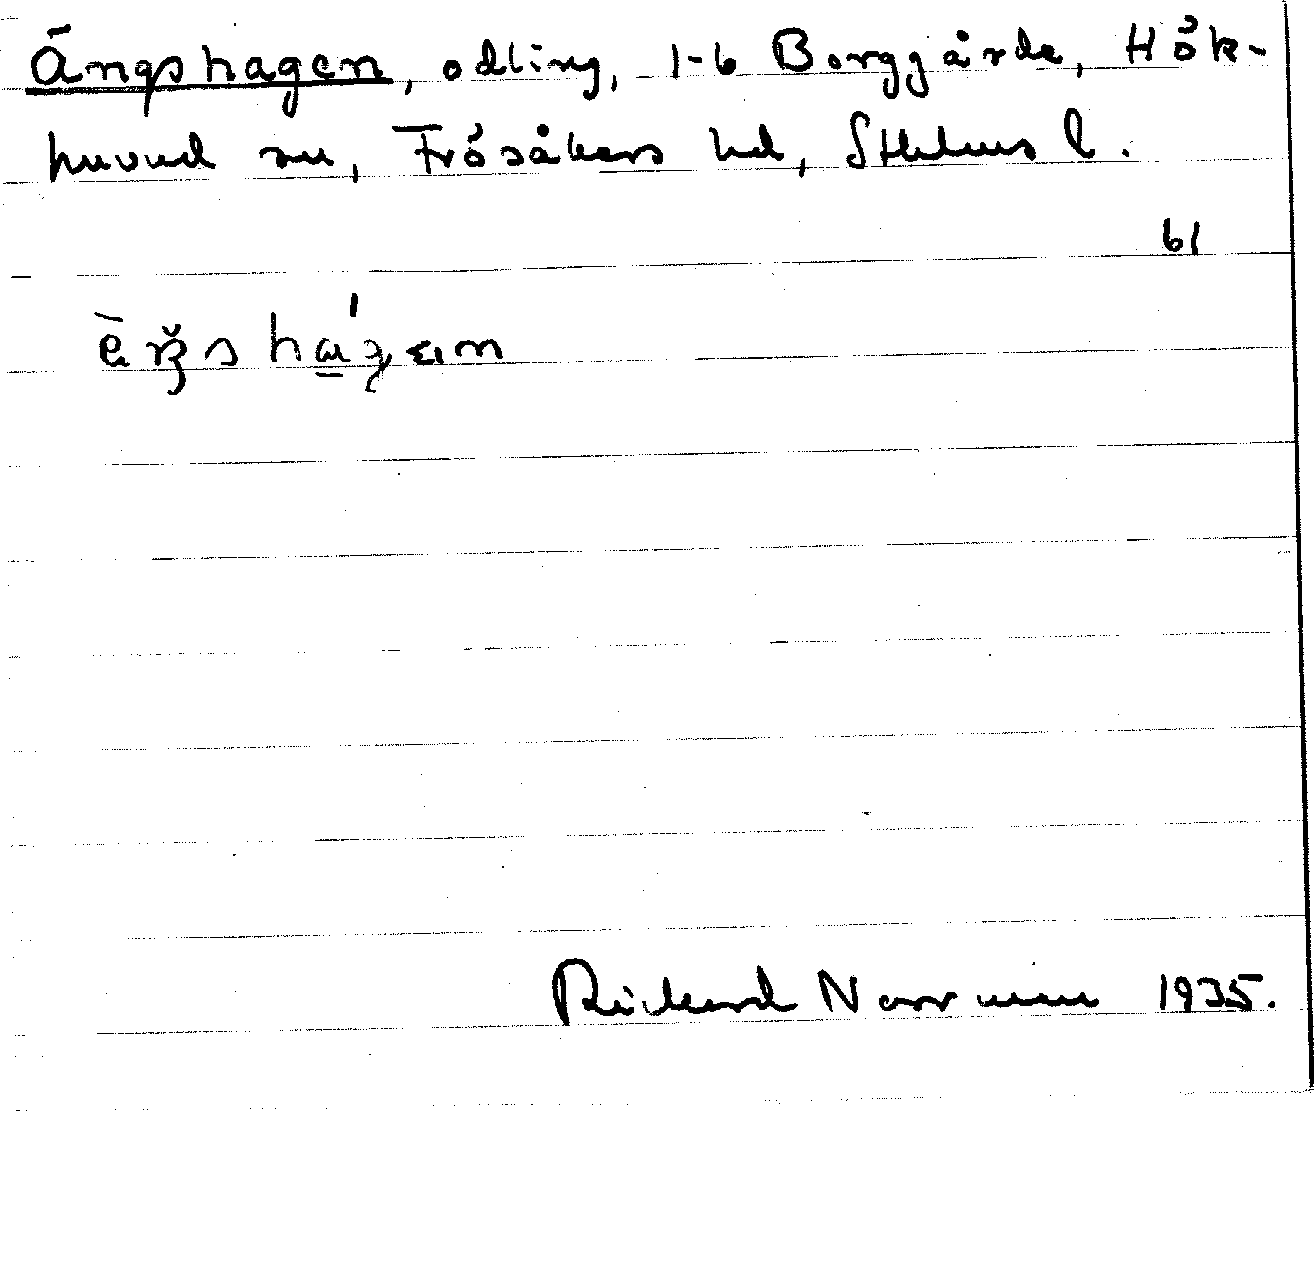 Ängshagen, odling, 1-6 Borggårde, Hök-
huvud sn, Frösåkers hd, Sthlms l.
61
Rickard Norrman 1935.